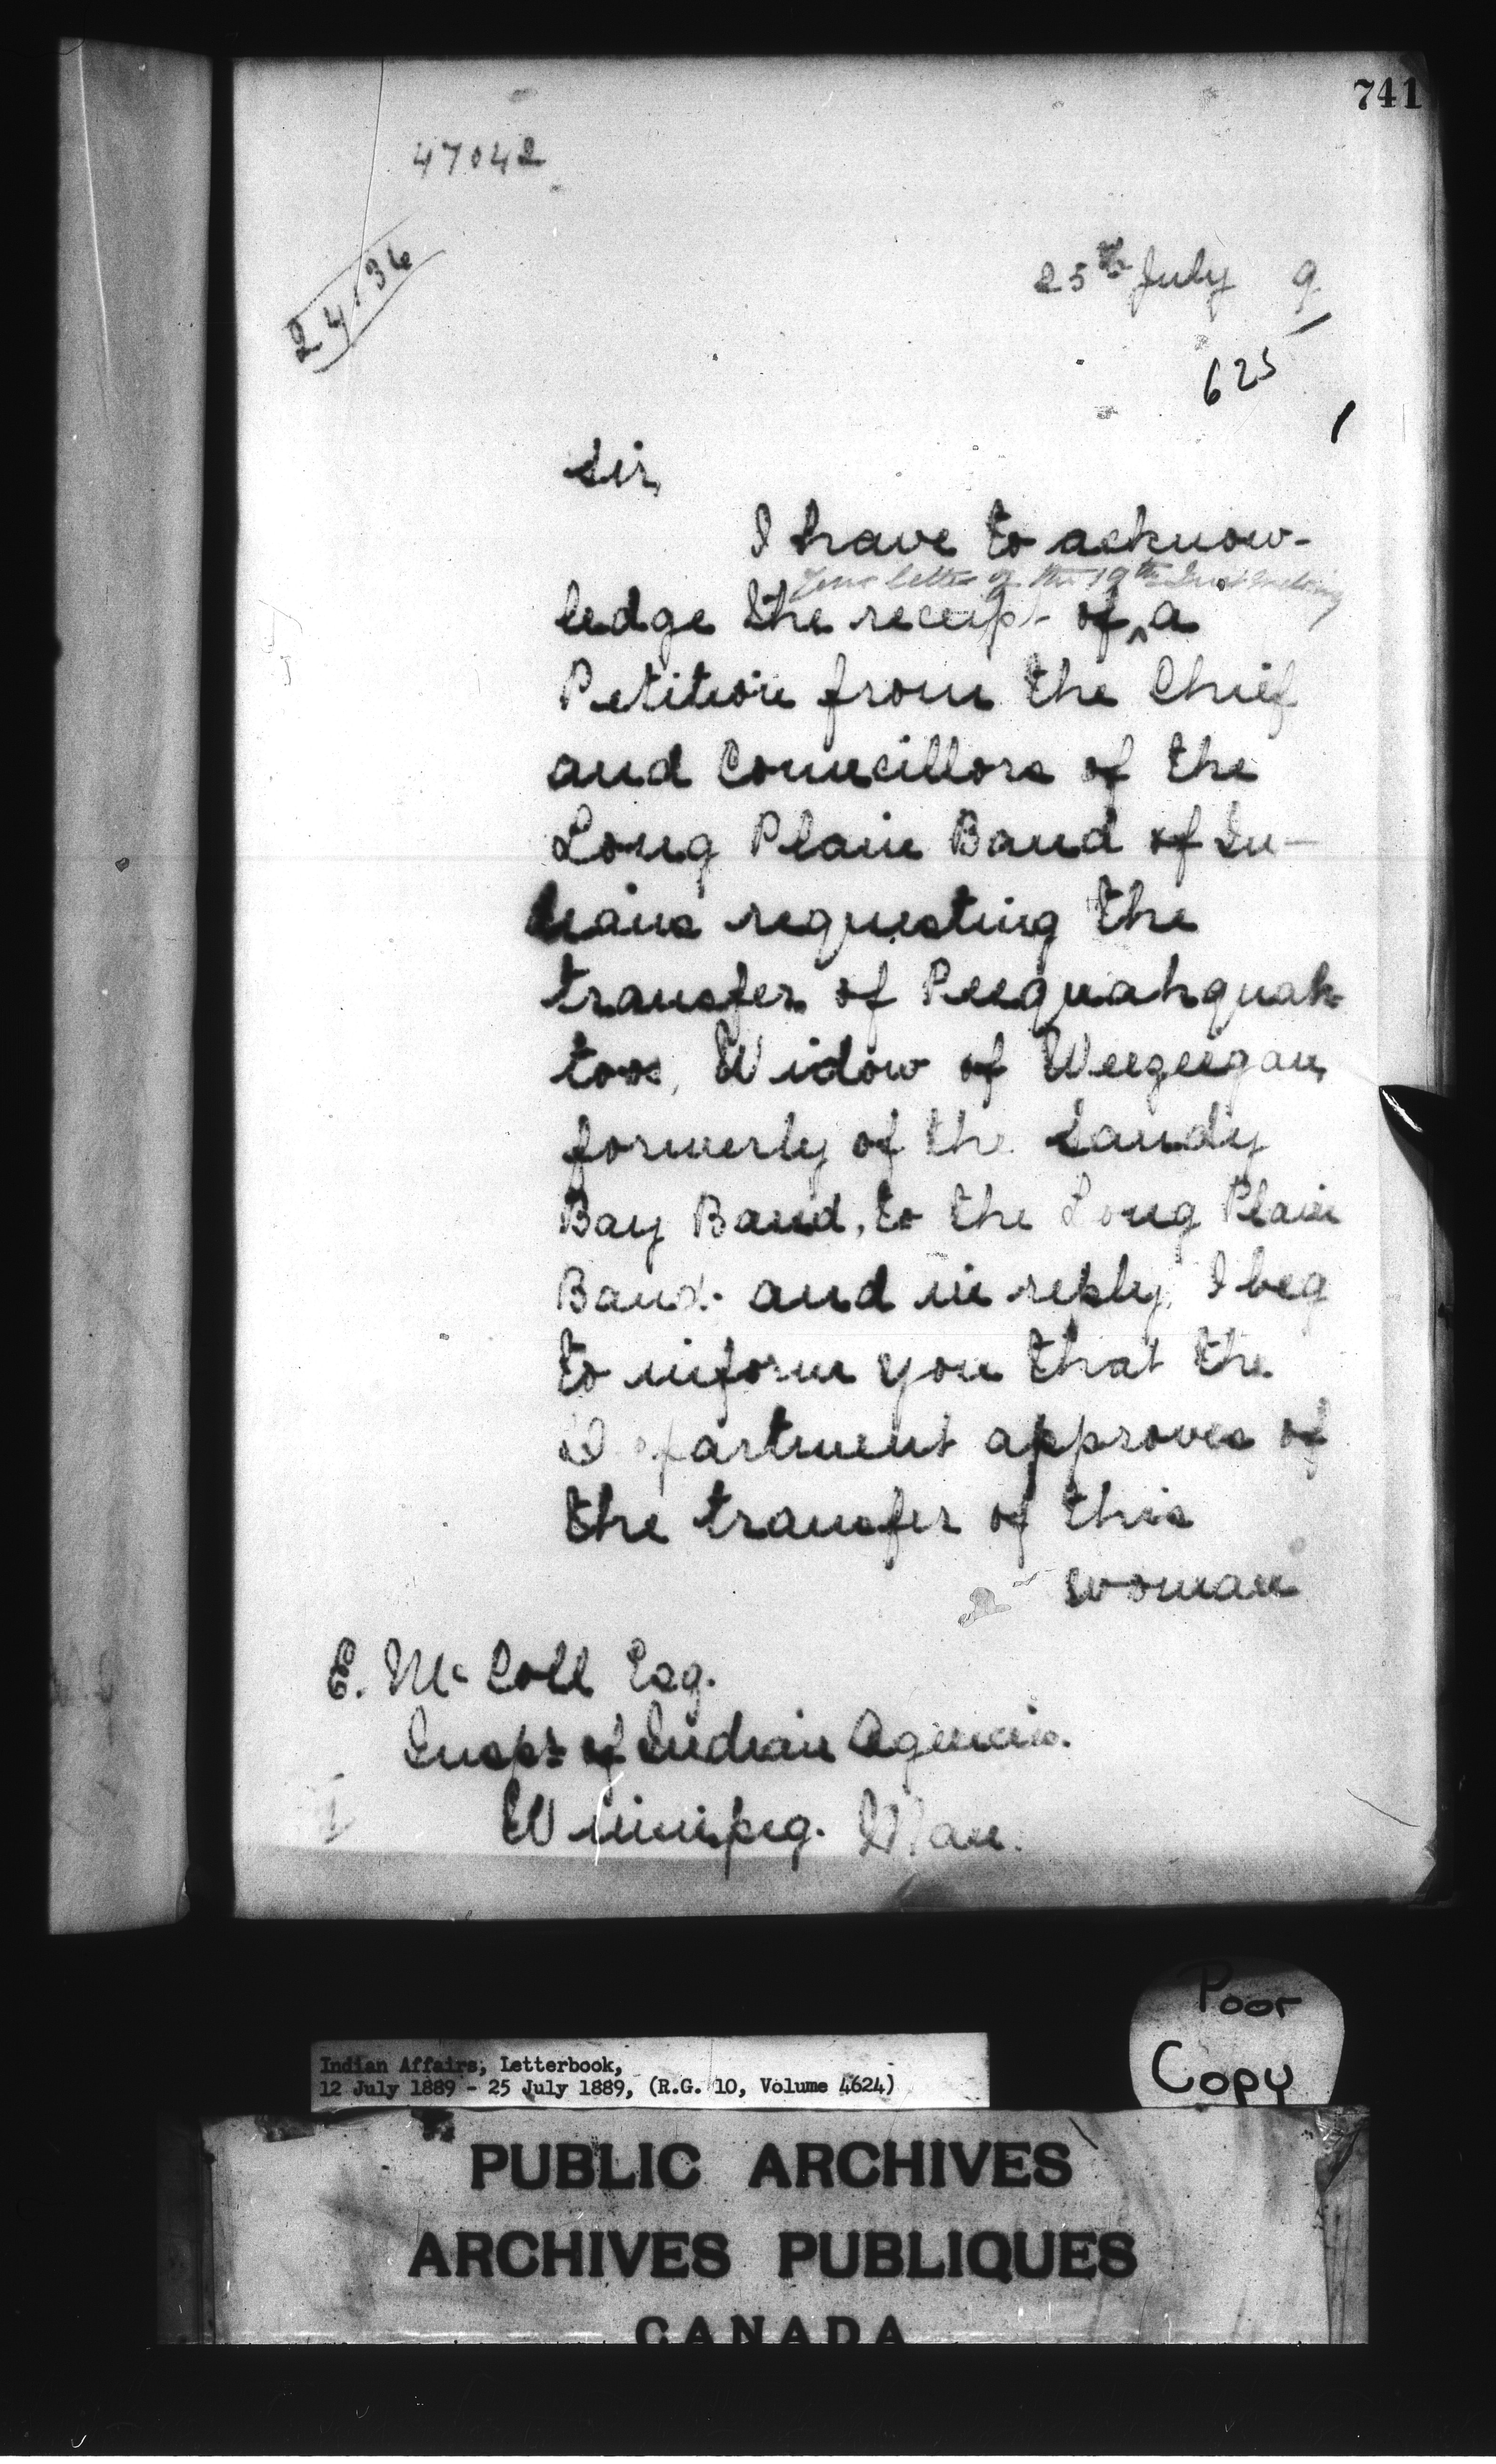 741
47042
24136
25th July 9
625
Sir,
I have to acknow-
your letter of the 19th Inst enclosing
ledge the receipt of a
Petition from the Chief
and Councillors of the
Long Plain Band of In-
dians requesting the
transfer of Peequahquah-
toos, Widow of Weezeegan,
formerly of the Sandy
Bay Band, to the Long Plain
Band. and in reply, I beg
to inform you that the
Department approves of
the transfer of this
woman
E. McColl Esq.
Inspr of Indian Agencies.
Winnipeg. Man.
Poor
Copy
Indian Affairs, Letterbook,
12 July 1889 - 25 July 1889, (R.G. 10, Volume 4624)
PUBLIC ARCHIVES
ARCHIVES PUBLIQUES
CANADA